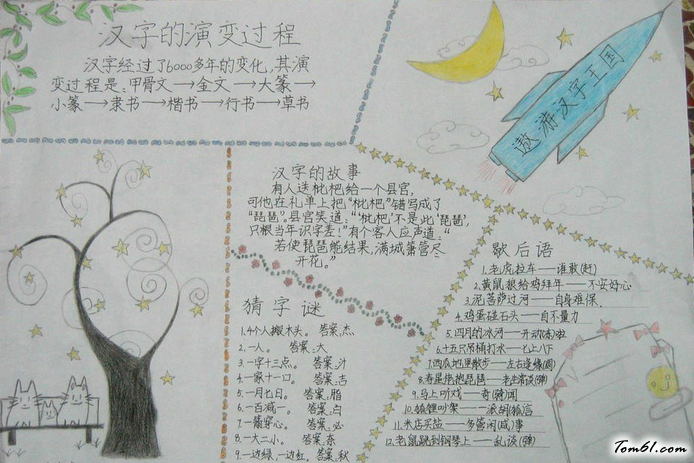 汉字的演变过程
汉字经过了6000多年的变化,其演
变过程是:甲骨文→金文→大篆→
小篆→隶书→楷书→行书→草书
遨游汉字王国
汉字的故事
有人送枇杷给一个县官,
可他在礼单上把“枇杷”错写成了
“琵琶”。县官笑道:“‘枇杷’不是此‘琵琶’,
只恨当年识字差!”有个客人应声道:“
若使琵琶能结果,满城箫管尽
开花。”
猜字谜
1.4个人搬木头。 答案:杰
2.一人。 答案:大
3.一字十三点。 答案:汁
4.一家十一口。 答案:吉
5.一月七日。 答案:脂
6.一百减一。 答案:白
7.一箭穿心。 答案:必
8.一大二小。 答案:奈
9.一边绿,一边红。 答案:秋
歇后语
1.老虎拉车——谁敢(赶)
2.黄鼠狼给鸡拜年——不安好心
3.泥菩萨过河——自身难保.
4.鸡蛋碰石头——自不量力
5.四月的冰河——开动(冻)啦
6.十五只吊桶打水——七上八下
7.西瓜地里散步——左右逢缘(圆)
8.寿星弹琵琶——老生常谈(弹)
9.马上听戏——奇(骑)闻
10.狐狸吵架——一派胡狐言
11.米店买盐——多管闲(咸)事
12.老鼠跳到钢琴上——乱谈(弹)
Tom61.com